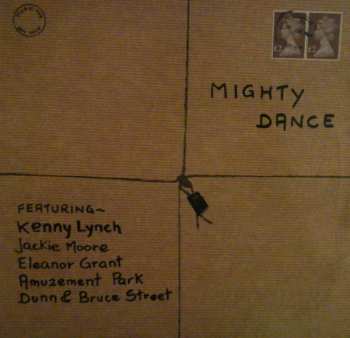 MIGHTY
DANCE
FEATURING~
Kenny Lynch
Jackie Moore
Eleanor Grant
Amuzement Park
Dunn & Bruce Street